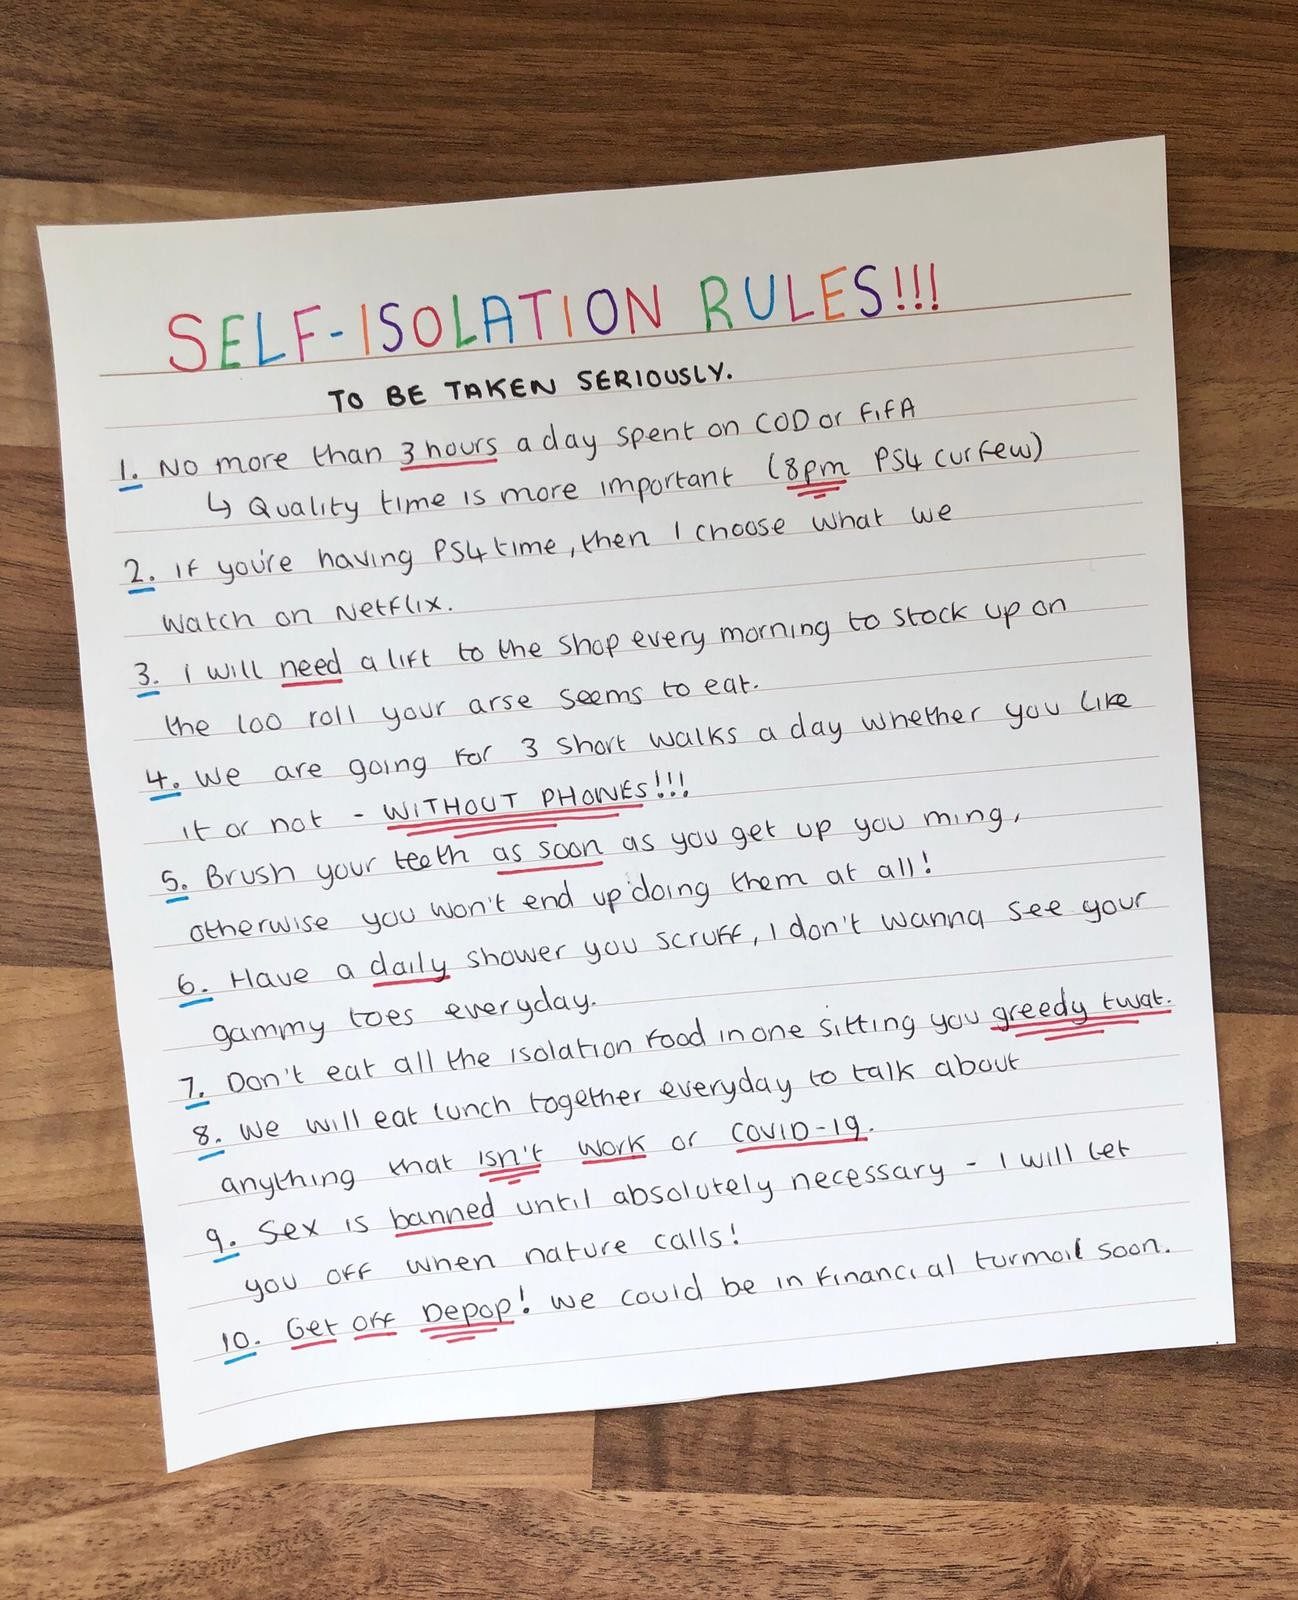 SELF-ISOLATION RULES!!!
TO BE TAKEN SERIOUSLY.
1. No more than 3 hours a day spent on COD or FIFA
↳ Quality time is more important (8pm PS4 curfew)
2. If you're having PS4 time, then I choose what we
watch on Netflix.
3. I will need a lift to the shop every morning to stock up on
the loo roll your arse seems to eat.
4. We are going for 3 short walks a day whether you like
it or not - WITHOUT PHONES!!!
5. Brush your teeth as soon as you get up you ming,
otherwise you won't end up doing them at all!
6. Have a daily shower you scruff, I don't wanna see your
gammy toes everyday.
7. Don't eat all the isolation food in one sitting you greedy twat.
8. We will eat lunch together everyday to talk about
anything that isn't work or COVID-19.
9. Sex is banned until absolutely necessary - I will let
you off when nature calls!
10. Get off Depop! We could be in financial turmoil soon.